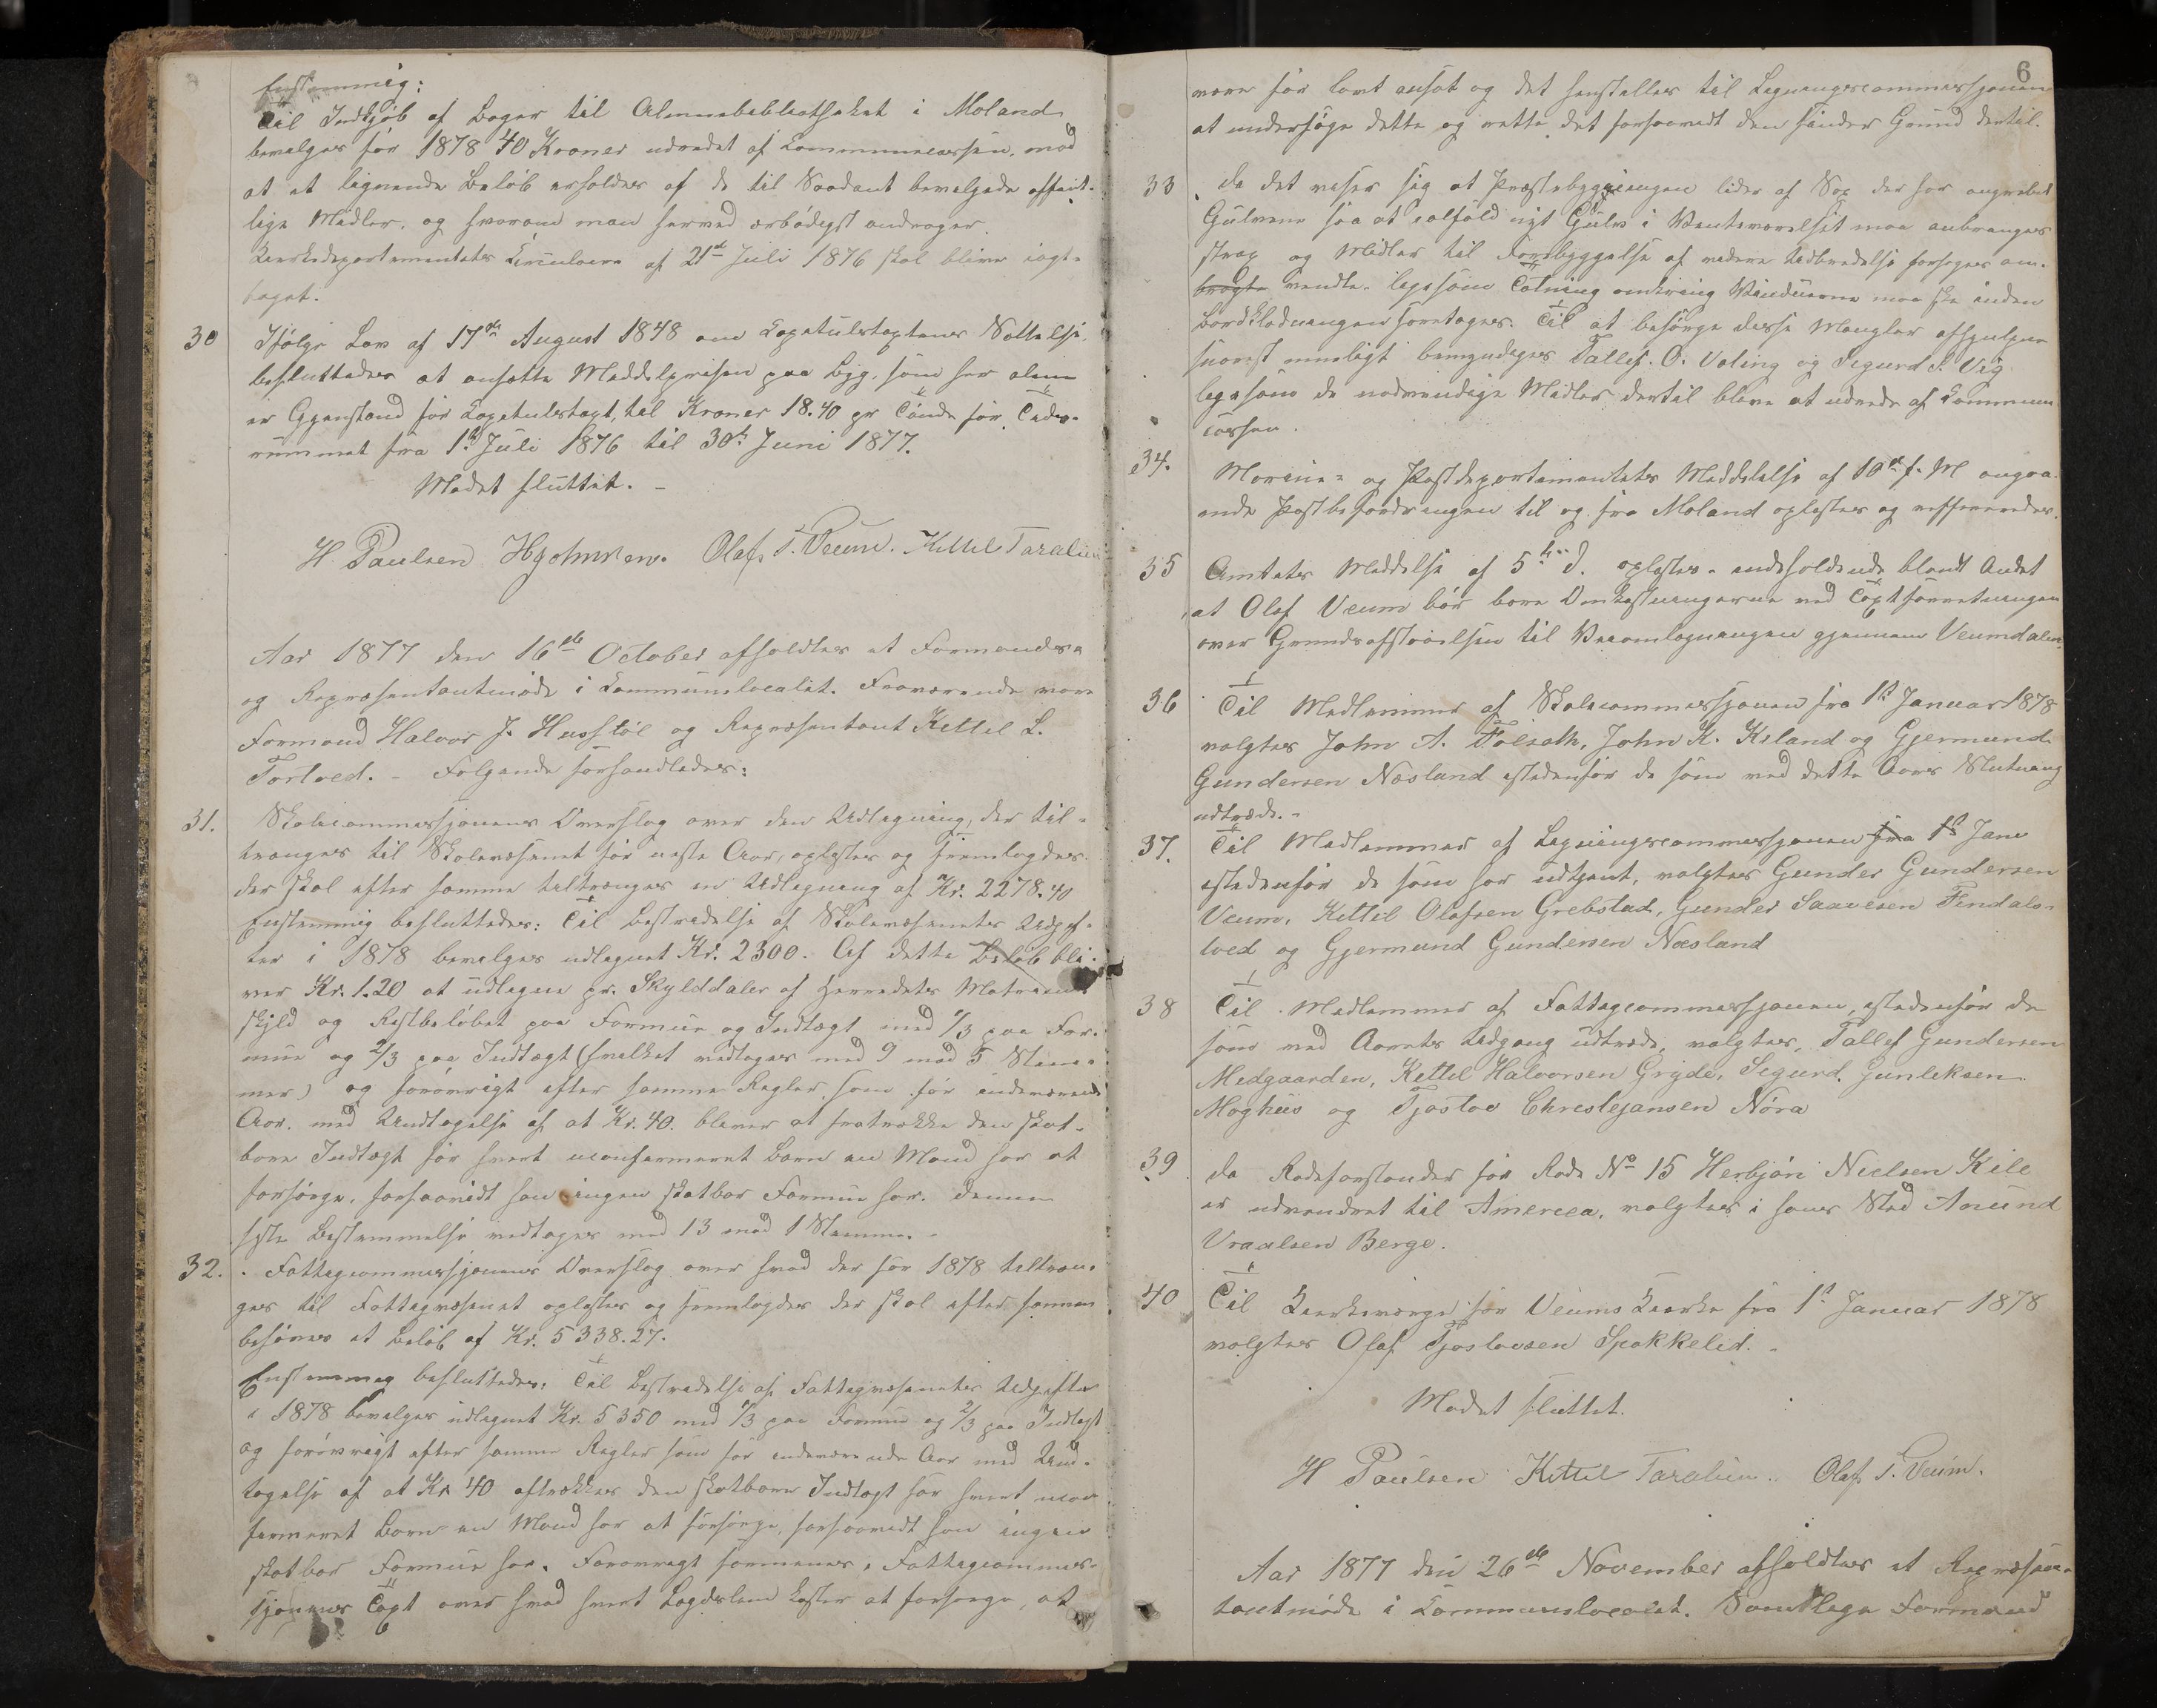 Enstemmig:
Til Indkjøb af Bøger til Almuebibliotheket i Moland
bevalges for 1878 40 Kroner udredet af Communecassen, mod
at et lignende Beløb erholdes af de til Saadant bevilgede offent-
lige Midler, og hvorom man herved ærbødigst andrager.
Kirkedepartementets Circulære af 21de Juli 1876 skal blive iagt-
taget.
30 Ifølge Lov af 17de August 1848 om Capitulstaxtens Sættelse,
besluttedes at ansætte Middelprisen paa Byg, som her alene
er Gjenstand for Capitulstaxt, til Kroner 18.40 pr Tønde for Tids-
rummet fra 1ste Juli 1876 til 30te Juni 1877.
Mødet sluttet. -
H Paulsen Olaf T. Veum. Kittil Taraldlien
Aar 1877 den 16de October afholdtes et Formands-
og Repræsentantmøde i Communelocalet. Fraværende vare
Formand Halvor J. Husstøl og Repræsentant Kettil L.
Tortved. - Følgende forhandledes:
31. Skolecommissjonens Overslag over den Udligning, der til-
trænges til Skolevæsenet for næste Aar, oplæstes og fremlagdes.
der skal efter samme tiltrænges en Udligning af Kr. 2278.40
Enstemmig besluttedes: Til Bestridelse af Skolevæsenets Udgif-
ter i 1878 bevilges udlignet Kr. 2300. Af dette Beløb bli-
ver Kr. 1.20 at udligne pr. Skylddaler af Herredets Matricul
skyld og Restbeløbet paa Formue og Indtægt med 1/3 paa For-
mue og 2/3 paa Indtægt (hvilket vedtoges med 9 mod 5 Stem-
mer) og forøvrigt efter samme Regler som for indeværende
Aar, med Undtagelse af at Kr. 40. bliver at fratrække den skat-
bare Indtægt for hvert uconfirmeret Barn en Mand har at
forsørge, forsaavidt han ingen skatbar Formue har. Denne
sidste Bestemmelse vedtoges med 13 mod 1 Stemme. -
32. Fattigcommissjonens Overslag over hvad der for 1878 tiltræn-
ges til Fattigvæsenet oplæstes og fremlagdes der skal efter samme
behøves et Beløb af Kr. 5338.27.
Enstemmig besluttedes: Til Bestridelse af Fattigvæsenets Udgifter
i 1878 bevilges udlignet Kr. 5350 med 1/3 paa Formue og 2/3 paa Indtægt
og forøvrigt efter samme Regler som for indeværende Aar med Und-
tagelse af at Kr 40 aftrækkes den skatbare Indtægt for hvert ucon-
firmeret Barn en Mand har at forsørge, forsaavidt han ingen
skatbar Formue har. Forøvrigt formenes, Fattigcommis-
sjonens Taxt over hvad hvert Lægdslem koster at forsørge, at
6
være for lavt ansat og det henstilles til Ligningscommissjonen
at undersøge dette og rette det forsaavidt den finder Grund dertil.
33 da det viser sig at Præstebygningen lider af Sop der har angrebet
Gulvene saa at ialfald nyt Gulv i Venteværelset maa anbringes
strax og Midler til Forebyggelse af videre Udbredelse forsøges an-
bragte vendte. ligesom Tætning omkring Vinduerne maa ske inden
Bordklædningen foretages. Til at besørge disse Mangler afhjulpne
snarest muligt bemyndiges Tallef O. Valing og Sigurd S. Vig
ligesom de nødvendige Midler dertil blive at udrede af Commune
cassen.
34. Marine- og Postdepartementets Meddelelse af 10de f. M angaa-
ende Postbefordringen til og fra Moland oplæstes og
35 Amtets Meddelse af 5te d. oplæstes - indeholdende blandt Andet
at Olaf Veum bør bære Omkostningerne ved Taxtforretningen
over Grundafstaaelsen til Veiomlægningen gjennem Veumdalen.
36 Til Medlemmer af Skolecommissjonen fra 1ste Januar 1878
valgtes John A. Folseth, John K. Kiland og Gjermund
Gundersen Næsland istedenfor de som ved dette Aars Slutning
udtræde. -
37. Til Medlemmer af Ligningscommissjonen fra 1ste Janu
istedenfor de som har udtjent, valgtes Gunder Gundersen
Veum, Kittil Olafsen Grebstad, Gunder Saavesen Findals-
tved og Gjermund Gundersen Næsland
38 Til Medlemmer af Fattigcommissjonen, istedenfor de
som ved Aarets Udgang udtræde, valgtes, Tallef Gundersen
Midgaarden, Kittil Halvorsen Gryde, Sigurd Gunleksen
Moghus og Tjostov Christjansen Nøra
39 da Rodeforstander for Rode No 15 Herbjørn Nielsen Kile
er udvandret til America, valgtes i hans Sted Anund
Vraalsen Berge.
40 Til Kirkeværge for Veums Kirke fra 1ste Januar 1878
valgtes Olaf Tjostovsen Spokkelid. -
Mødet sluttet.
H Paulsen Kittil Taraldlien. Olaf T. Veum.
Aar 1877 den 26de November afholdtes et Repræsen-
tantmøde i Communelocalet. Samtlige Formænd